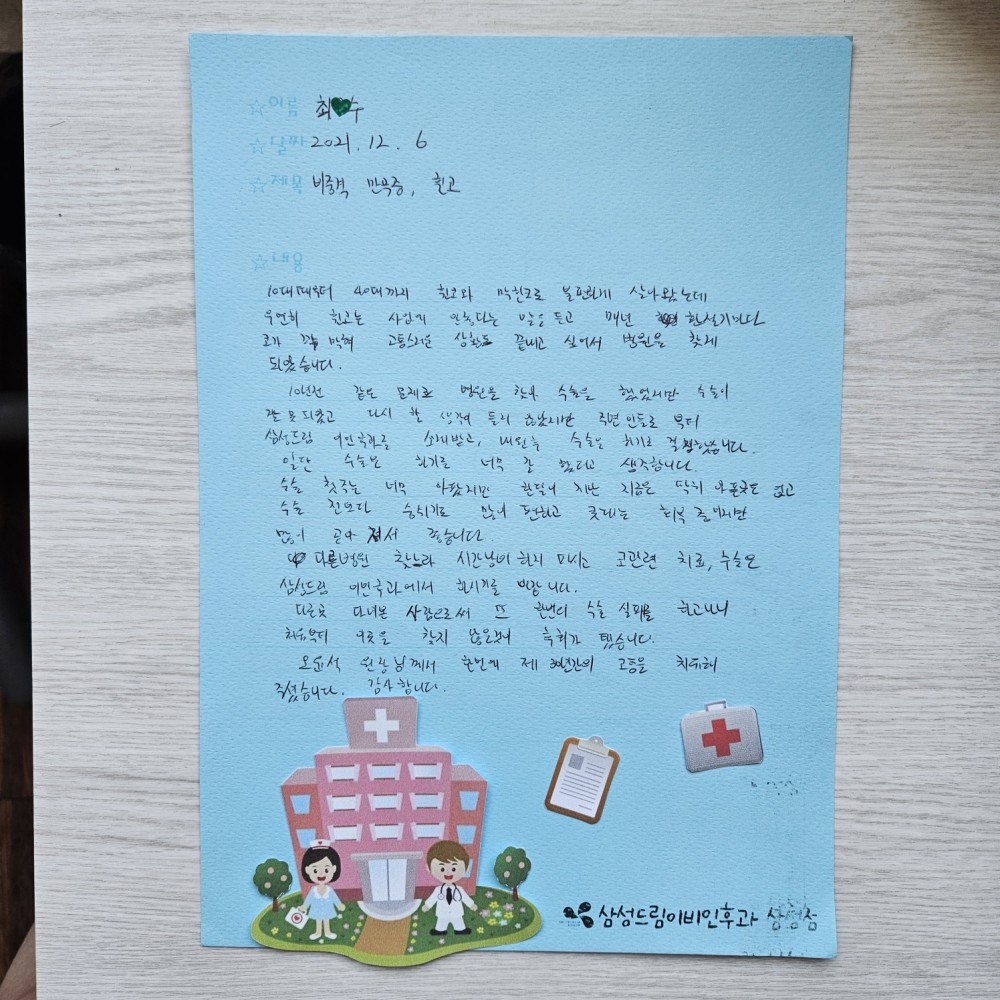 ☆이름 최♥수
☆날짜 2021.12.6
☆제목 비중격 만곡증, 휜코
☆내용
10대때부터 40대까지 휜코와 막힌코로 불편하게 살아왔는데
우연히 휜코는 사업에 안좋다는 말을 듣고 매년 환절기마다
코가 꽉 막혀 고통스러운 상황도 끝내고 싶어서 병원을 찾게
되었습니다.
10년전 같은 문제로 병원을 찾아 수술을 했었지만 수술이
잘 못 되었고 다시 할 생각이 들지 않았지만 주변 인들로 부터
삼성드림 이비인후과를 소개받고, 내원후 수술을 하기로 결정했습니다.
일단 수술은 하기를 너무 잘 했다고 생각합니다.
수술 첫주는 너무 아팠지만 한달이 지난 지금은 딱히 아픈곳도 없고
수술 전보다 숨쉬기도 많이 편하고 콧대는 회복 중이지만
많이 곧아 져서 좋습니다.
다른병원 찾느라 시간낭비 하지 마시고 코관련 치료, 수술은
삼성드림 이비인후과에서 하시기를 바랍니다.
다른곳 다녀본 사람으로써 또 한번의 수술 실패를 하고나니
처음부터 이곳을 찾지 않은것이 후회가 됐습니다.
오윤석 원장님께서 한번에 제 30년간의 고통을 치유해
주셨습니다. 감사합니다.
삼성드림이비인후과 삼성점